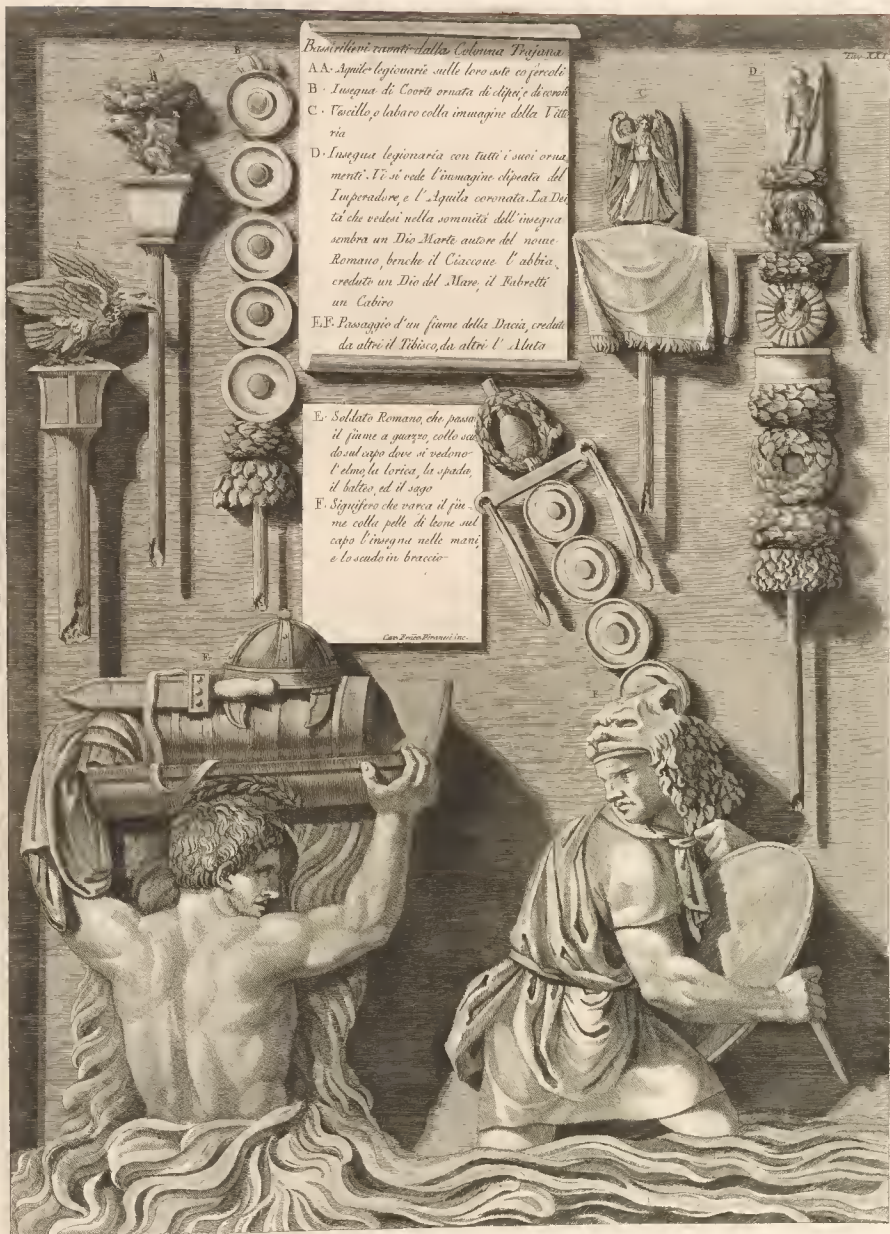 Tav. XXI
A
B
C
D
A
Bassirilievi cavati dalla Colonna Trajana
A A. Aquile legionarie sulle loro aste co fercoli
B. Insegna di Coorte ornata di clipei, e di coron
C. Vessillo, o labaro colla immagine della Vitto
ria
D. Insegna legionaria con tutti i suoi orna
menti. Vi si vede l'immagine clipeata del
Imperadore, e l'Aquila coronata. La Dei
tá che vedesi nella sommitá dell'insegna
sembra un Dio Marte autore del nome
Romano, benche il Ciaccone l'abbia
creduto un Dio del Mare, il Fabretti
un Cabiro
E.F. Passaggio d'un fiume della Dacia, credute
da altri il Tibisco, da altri l'Aluta
E. Soldato Romano, che passa
il fiume a guazzo, collo scu
do sul capo dove si vedono
l'elmo, la lorica, la spada,
il balteo, ed il sago
F. Signifero che varca il fiu-
me colla pelle di leone sul
capo l'insegna nelle mani,
e lo scudo in braccio
Cav. Piranesi inc.
E
F